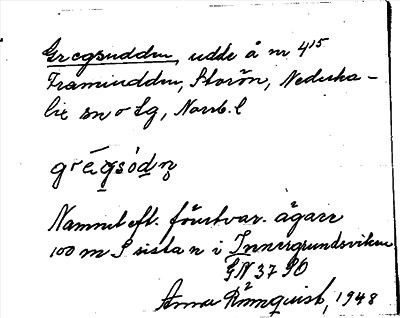 Gregsudden, udde å nr 4¹⁵
Framiudden, Storön, Nederka-
lix sn o Lg, Norrb. l
grégsòdn̥
Namnet eft. förutvar. ägare
100 m S sista n i Innergrundsviken
GN 37 SO
Anna Rönnquist, 1948